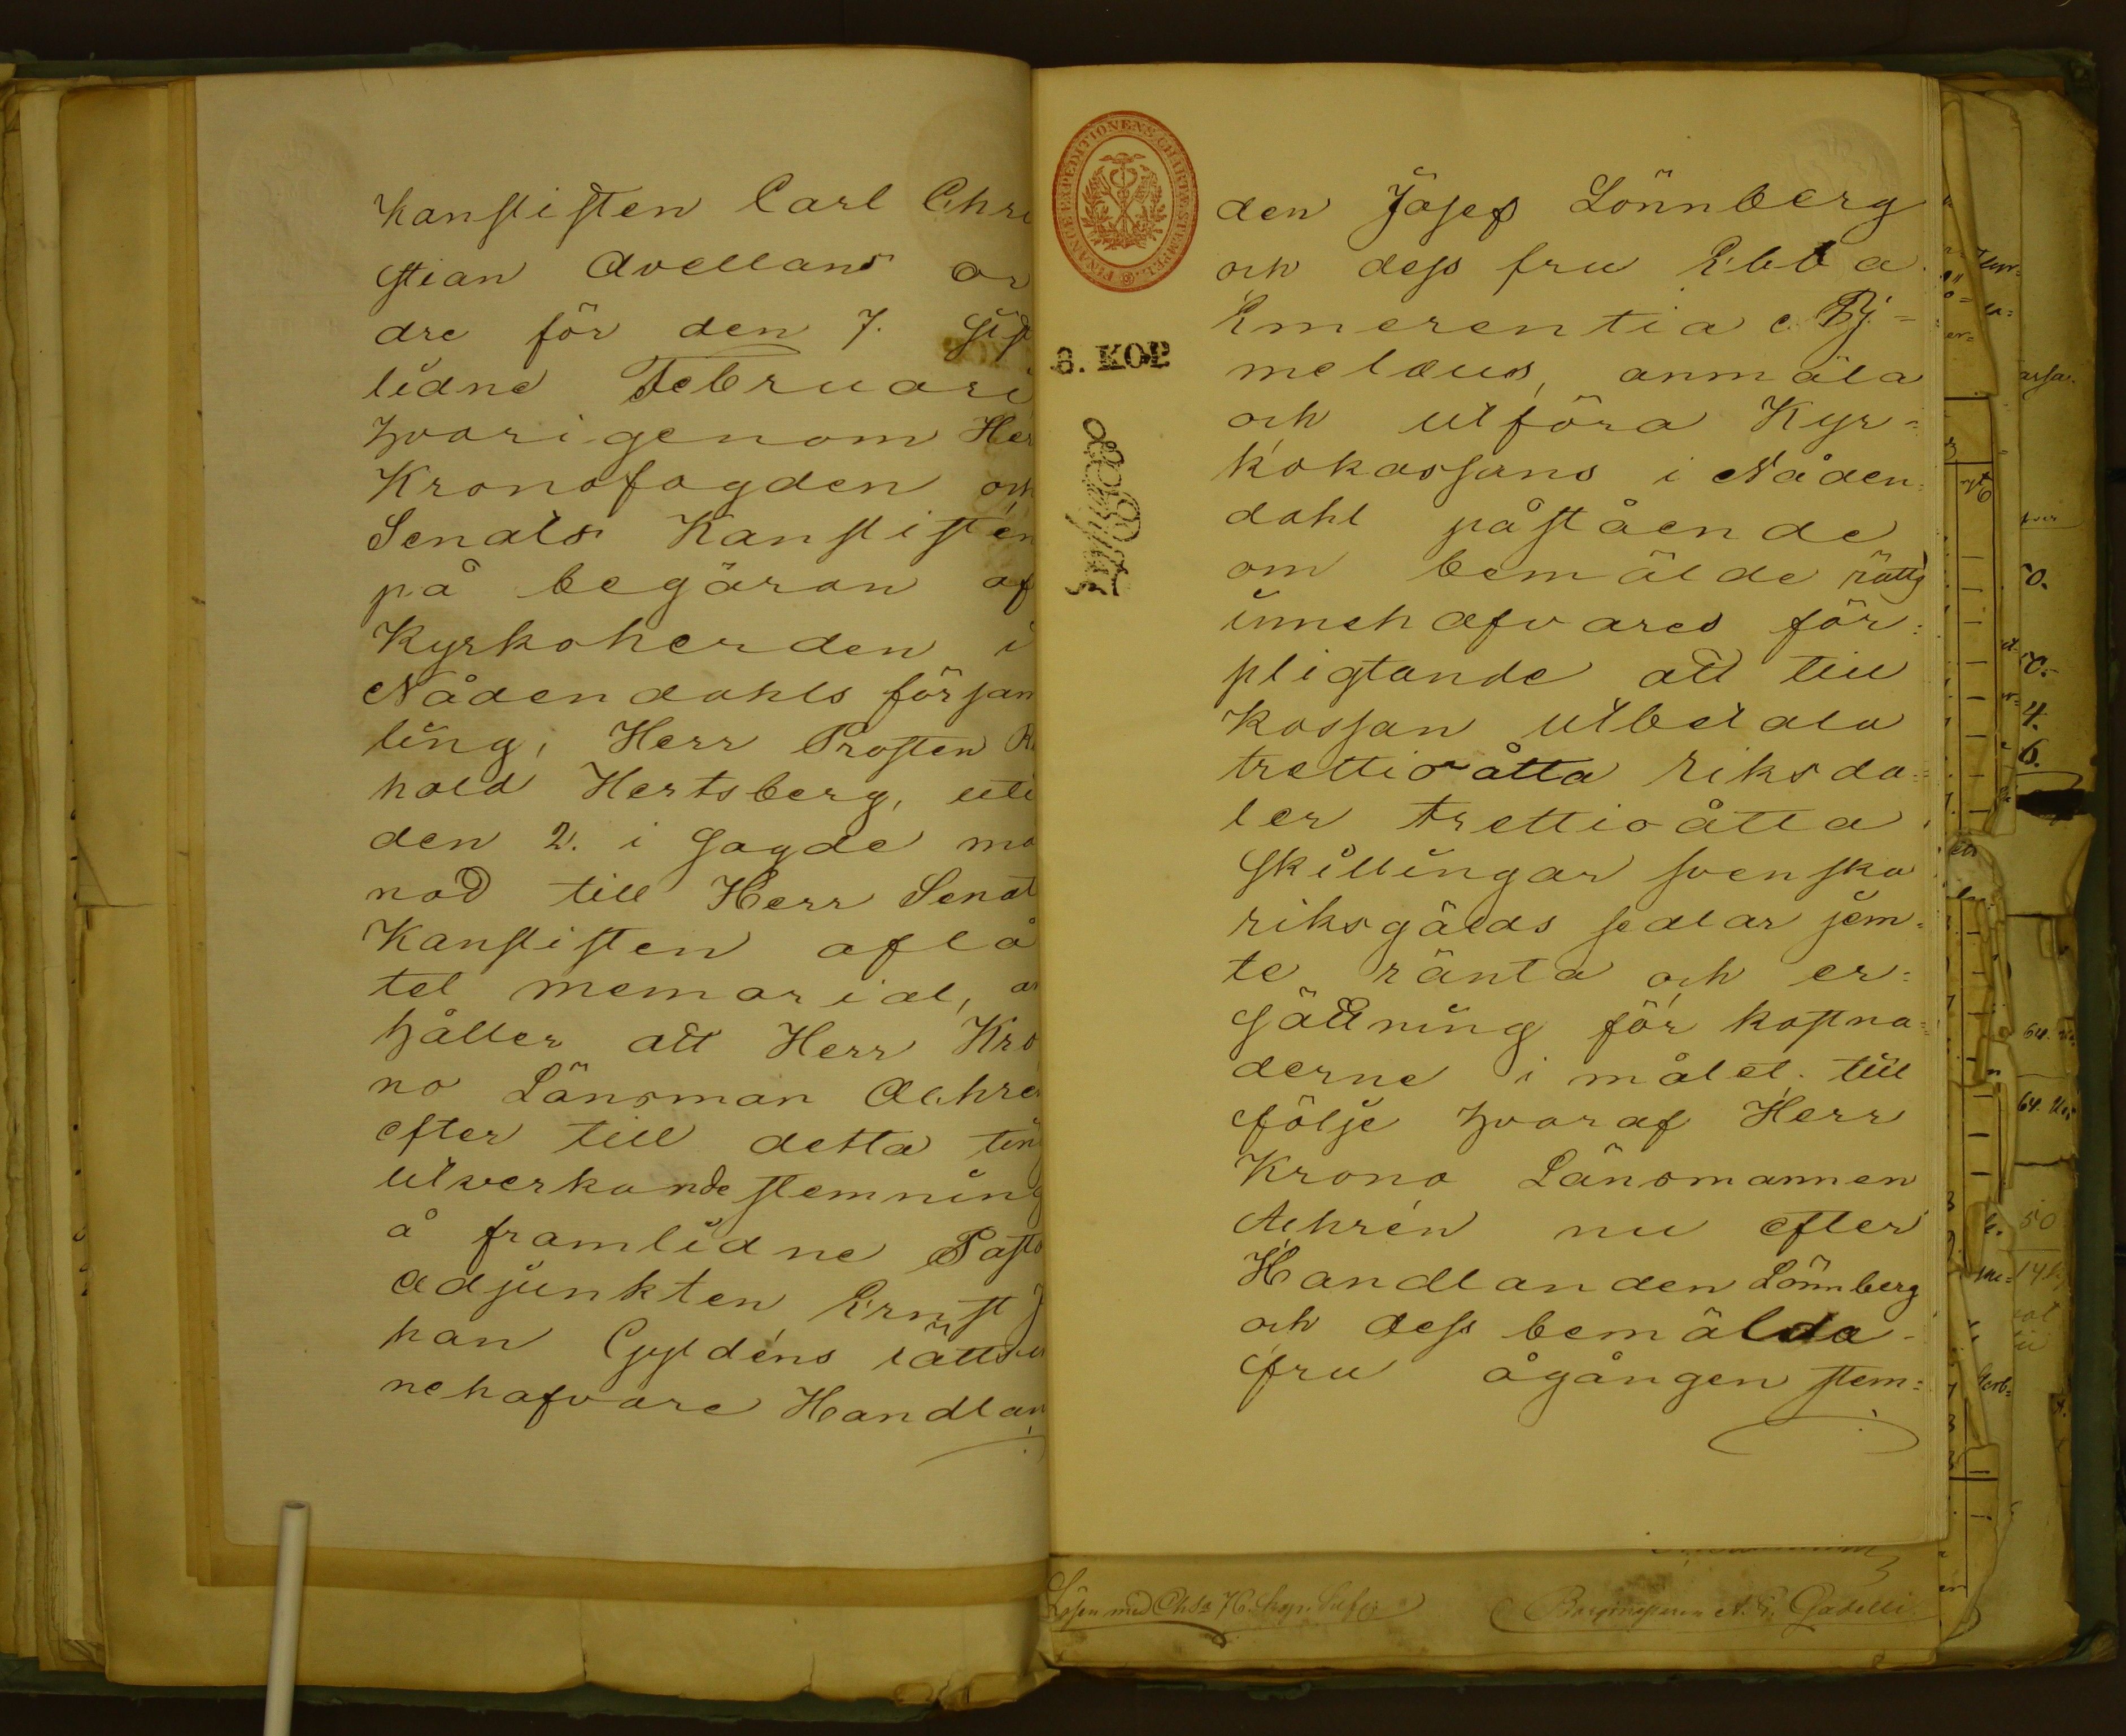 Kanslisten Carl Chri
stian Avellans or
dre för den 7. sist
lidne Februari
hvarigenom Her
Kronofogden och
Senats Kanslisten
på begäran af
Kyrkoherden i
Nådendahls försam
ling, Herr Prosten R
hold Hertsberg, uti
den 2. i sagde må
nad till Herr Senat
Kanslisten aflå
tet memorial, an
håller att Herr Kro
no Länsman Achré
efter till detta ting
utverkande stemning
å framlidne Pasto
adjunkten Ernst J
han Gyldéns rätts in
nehafvare Handlan
FINANCE EXPEDITIONENS CHARTÆ STEMPEL
8. KOP
den Josef Lönnberg
och dess fru Ebba
Emerentia Bj=
melæus, anmäla
och utföra Kyr=
kokassans i Nåden=
dahl påstående
om bemälde rätts
innehafvares för=
pligtande att till
Kassan utbetala
trettioåtta riksda=
ler trettioåtta
skillingar svenska
riksgälds sedlar jem=
te ränta och er=
sättning för kostna=
derne i målet. till
följe hvaraf Herr
Krono Länsmannen
Achrén nu efter
Handlanden Lönnberg
och dess bemälda
fru ågången stem=
Lösen med
Borgmästaren A. G. Gadelli